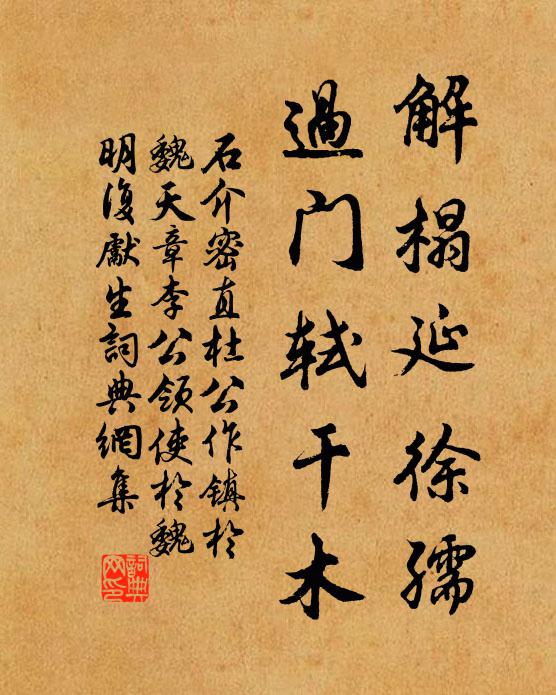 解榻延徐孺
過门軾干木
石介密直杜公作镇於
魏天章李公领使於魏
明復獻生詞典網集
詞典网印